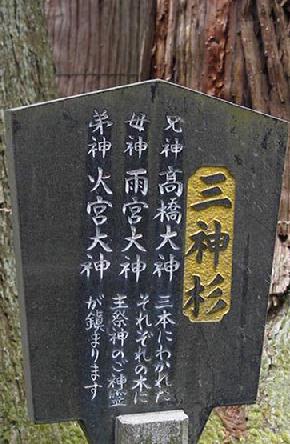 三神杉
兄神 高橋大神
母神 雨宮大神
弟神 火宮大神
三本にわかれた
それぞれの木に
主祭神のご神霊
が鎮まります